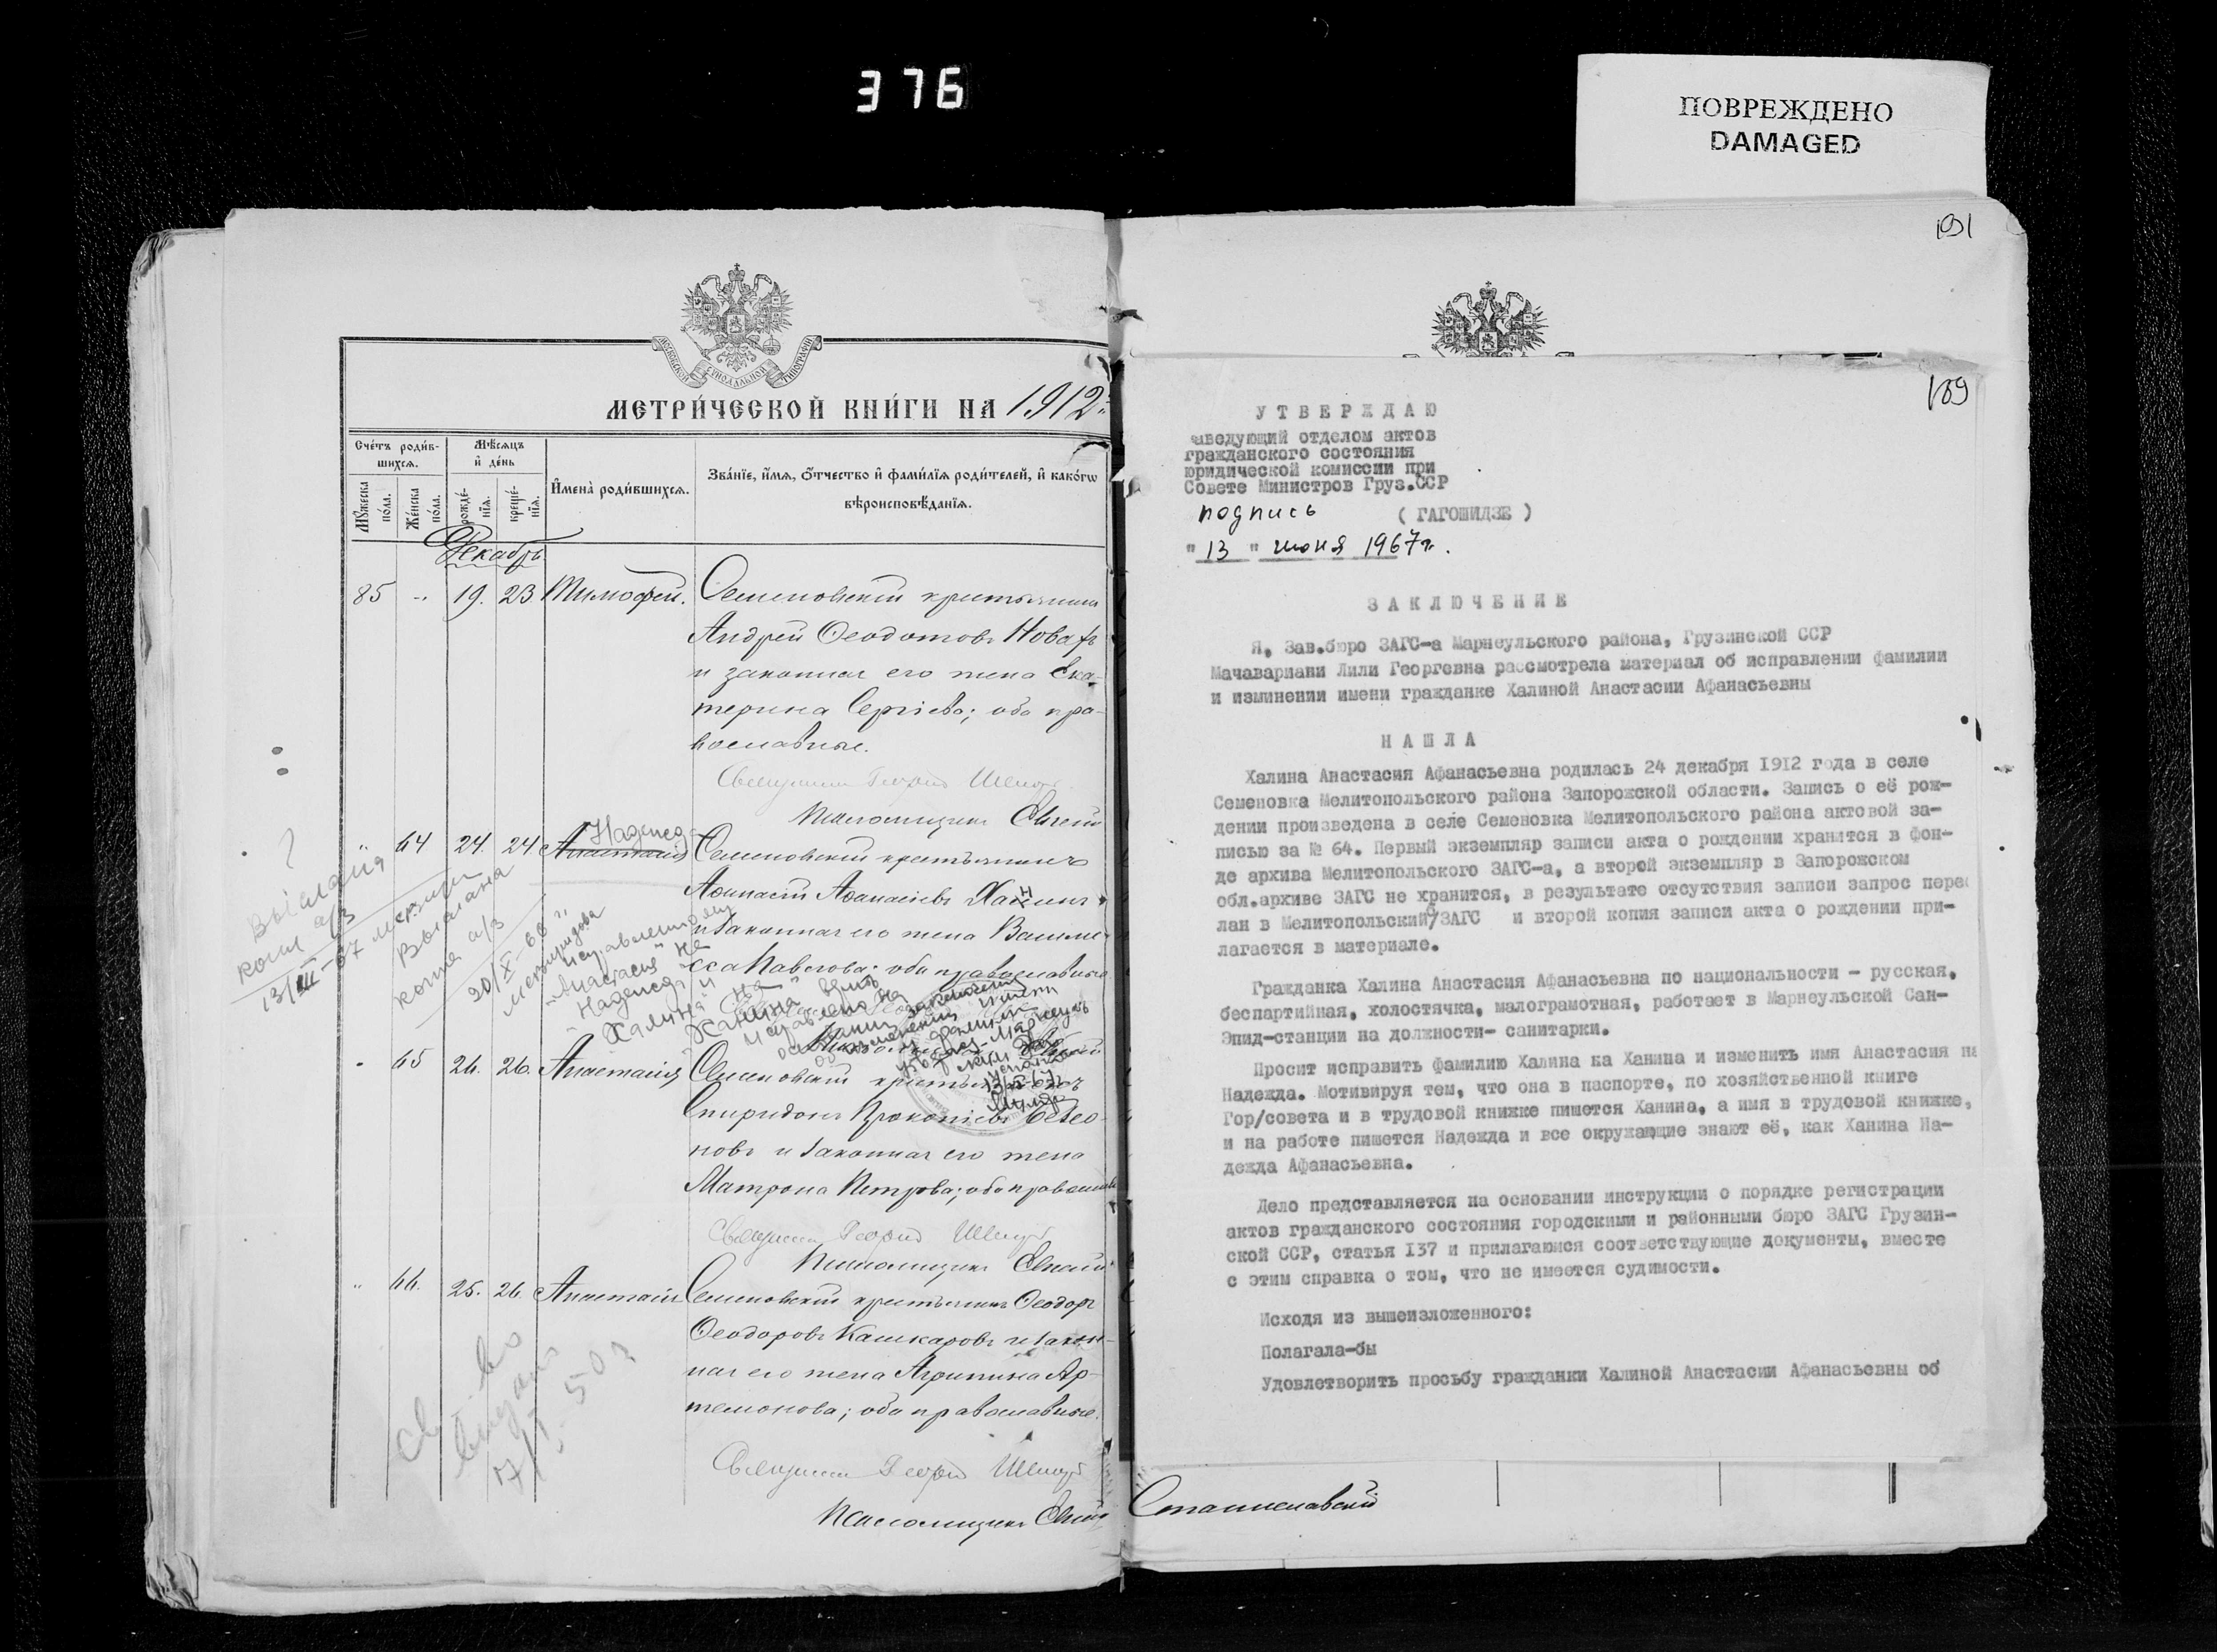 376
ПОВРЕЖДЕНО
DAMAGED
МОСКОВСКОЙ СѴНОДАЛЬНОЙ ТИПОГРАФІИ
МЕТРИ́ЧЕСКОЙ КНИ́ГИ НА 1912
Сче́тъ роди́в-
шихсѧ.
Мѣ́сѧцъ
и҆ де́нь
Мꙋ́жеска
по́ла.
Же́нска
по́ла.
рожде́-
нїѧ.
креще́-
нїѧ.
И҆мена̀ роди́вшихсѧ.
Зва́нїе, и҆́мѧ, ѻ҆́тчество и҆ фами́лїѧ роди́телей, и҆ како́гѡ
вѣроисповѣ́данїѧ.
Декабрь
85 " 19. 23. Тимофей. Семеновскій крестьянинъ
Андрей Ѳеодотовъ Новакъ
и законная его жена Ека-
терина Сергіева; оба пра-
вославные.
Священникъ Георгій
Псаломщикъ
Надежда
" 64 24. 24. Анастасія Семеновскій крестьянинъ
Аѳанасій Аѳанасіевъ Халинъ
и законная его жена Васили-
са Павлова; оба православные
" 65 26. 26. Анастасія Семеновскій крестьянинъ
Спиридонъ Прокопіевъ
новъ и законная его жена
Матрона Петрова; оба православн
Священникъ Георгій
Псаломщикъ
" 66. 25. 26. Анастасія Семеновскій крестьянинъ Ѳеодоръ
Ѳеодоровъ Кашкаровъ и закон-
ная его жена Агрипина Ар-
темонова; оба православные.
Священникъ Георгій
Псаломщикъ
Станиславскій
?
Выслана
копия а/з
13/III-67
Выслана
копия а/з
20/X-66
"Анастасия" на
"Надежда"
"Халина" на
"Ханина"
св-во
выдано
7/I-50г
191
189
УТВЕРЖДАЮ
аведующий отделом актов
гражданского состояния
юридической комиссии при
Совете Министров Груз.ССР
подпись ( ГАГОШИДЗЕ )
" 13 " июня 1967г.
ЗАКЛЮЧЕНИЕ
Я, Зав.бюро ЗАГС-а Марнеульского района, Грузинской ССР
Мачавариани Лили Георгевна рассмотрела материал об исправлении фамилии
и изминении имени гражданке Халиной Анастасии Афанасьевны
НАШЛА
Халина Анастасия Афанасьевна родилась 24 декабря 1912 года в селе
Семеновка Мелитопольского района Запорожской области. Запись о её рож-
дении произведена в селе Семеновка Мелитопольского района актовой за-
писью за № 64. Первый экземпляр записи акта о рождении хранится в фон-
де архива Мелитопольского ЗАГС-а, а второй экземпляр в Запорожском
обл.архиве ЗАГС не хранится, в результате отсутствия записи запрос перес
лан в Мелитопольский ЗАГС и второй копия записи акта о рождении при-
лагается в материале.
Гражданка Халина Анастасия Афанасьевна по национальности - русская,
беспартийная, холостячка, малограмотная, работает в Марнеульской Сан-
Эпид-станции на должности- санитарки.
Просит исправить фамилию Халина на Ханина и изменить имя Анастасия на
Надежда. Мотивируя тем, что она в паспорте, по хозяйственной книге
Гор/совета и в трудовой книжке пишется Ханина, а имя в трудовой книжке,
и на работе пишется Надежда и все окружающие знают её, как Ханина На-
дежда Афанасьевна.
Дело представляется на основании инструкции о порядке регистрации
актов гражданского состояния городскими и районными бюро ЗАГС Грузин-
ской ССР, статья 137 и прилагаются соответствующие документы, вместе
с этим справка о том, что не имеется судимости.
Исходя из вышеизложенного:
Полагала-бы
Удовлетворить просьбу гражданки Халиной Анастасии Афанасьевны об